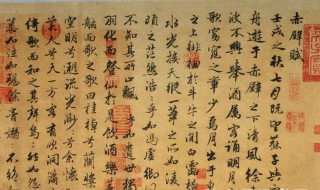 赤壁賦
壬戌之秋七月既望蘇子與客
舟遊于赤壁之下清風徐
波不興舉酒屬客誦明月
歌窈窕之章少焉月出于東
之上徘徊於斗牛之間白露
水光接天縱一葦之所如凌
頃之茫然浩浩乎如馮虛御
不知其所止飄飄乎如遺世
羽化而登仙於是飲酒樂
舷而歌之歌曰桂棹兮蘭槳
空明兮泝流光渺渺兮余懷
美人兮天一方客有吹洞簫
倚歌而和之其聲嗚嗚然如怨
慕如泣如訴餘音嫋嫋不絕